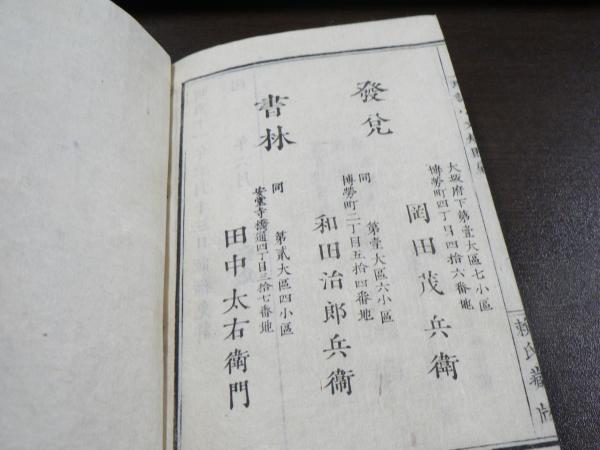 發兌
書林
大坂府下第壹大區七小區
博勞町四丁目四拾六番地
岡田茂兵衛
同 第壹大區六小區
博勞町二丁目五拾四番地
和田治郎兵衞
同 第貳大區四小區
安堂寺橋通四丁目三拾七番地
田中太右衛門
頼氏藏版